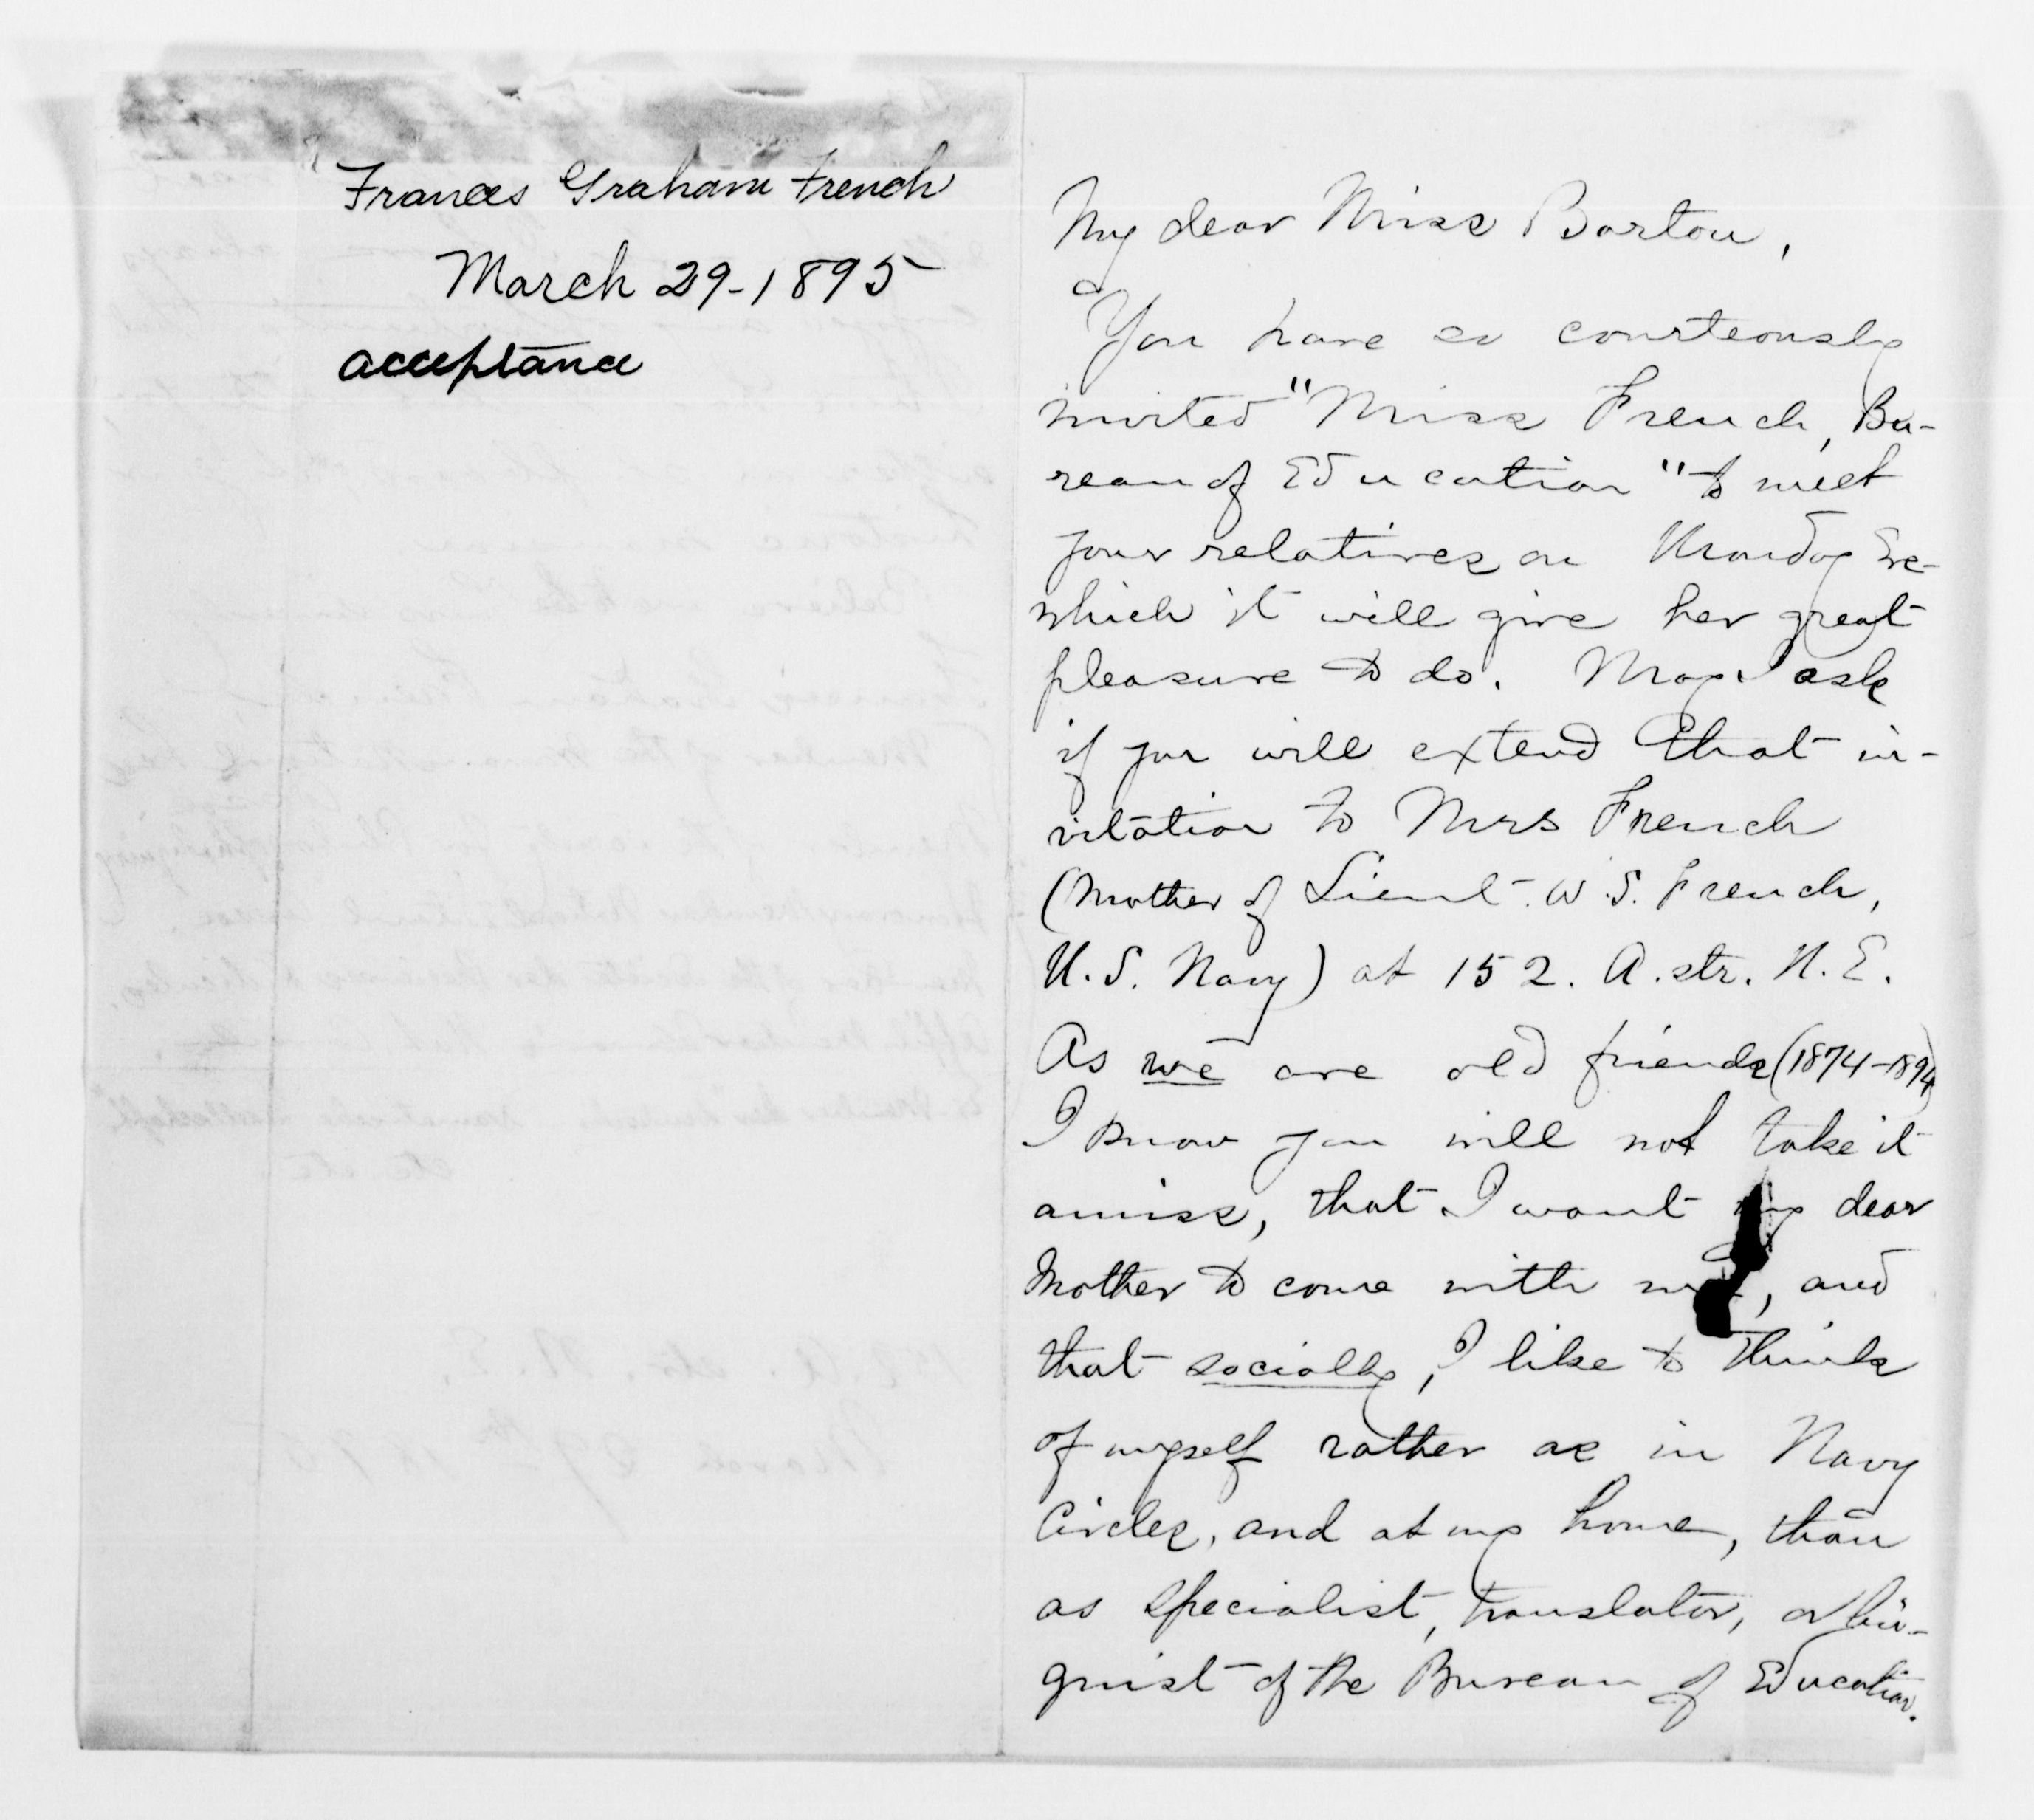 Frances Graham French
March 29-1895
acceptance
My dear Miss Barton,
You have so courteously
invited "Miss French, Bu-
reau of Education" to meet
your relatives on Monday Eve-
which it will give her great
pleasure to do. May I ask
if you will extend that in-
vitation to Mrs French
(Mother of Lieut. W. S. French,
U.S. Navy) at 152. A. str. N. E.
As we are old friends (1874-1894)
I know you will not take it
amiss, that I want my dear
Mother to come with me, and
that socially, I like to think
of myself rather as in Navy
Circles, and at my home, than
as specialist, translator, or lin-
guist of the Bureau of Education.